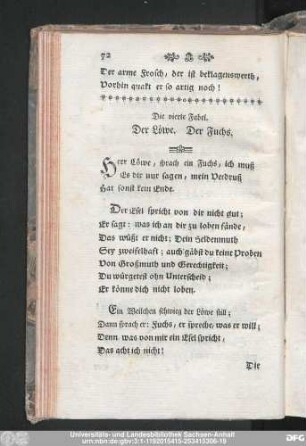 52
Der arme Frosch, der ist beklagenswerth,
Vorhin quakt er so artig noch!
Die vierte Fabel.
Der Löwe. Der Fuchs.
Herr Löwe, sprach ein Fuchs, ich muß
Es dir nur sagen, mein Verdruß
Hat sonst kein Ende.
Der Esel spricht von dir nicht gut;
Er sagt: was ich an dir zu loben fände,
Das wüßt er nicht; Dein Heldenmuth
Sey zweifelhaft; auch gäbst du keine Proben
Von Großmuth und Gerechtigkeit;
Du würgetest ohn Unterscheid;
Er könne dich nicht loben.
Ein Weilchen schwieg der Löwe still;
Dann sprach er: Fuchs, er spreche was er will;
Denn was von mir ein Esel spricht,
Das acht ich nicht!
Die
Universitäts- und Landesbibliothek Sachsen-Anhalt
urn:nbn:de:gbv:3:1-1192015415-203415306-19
DFG